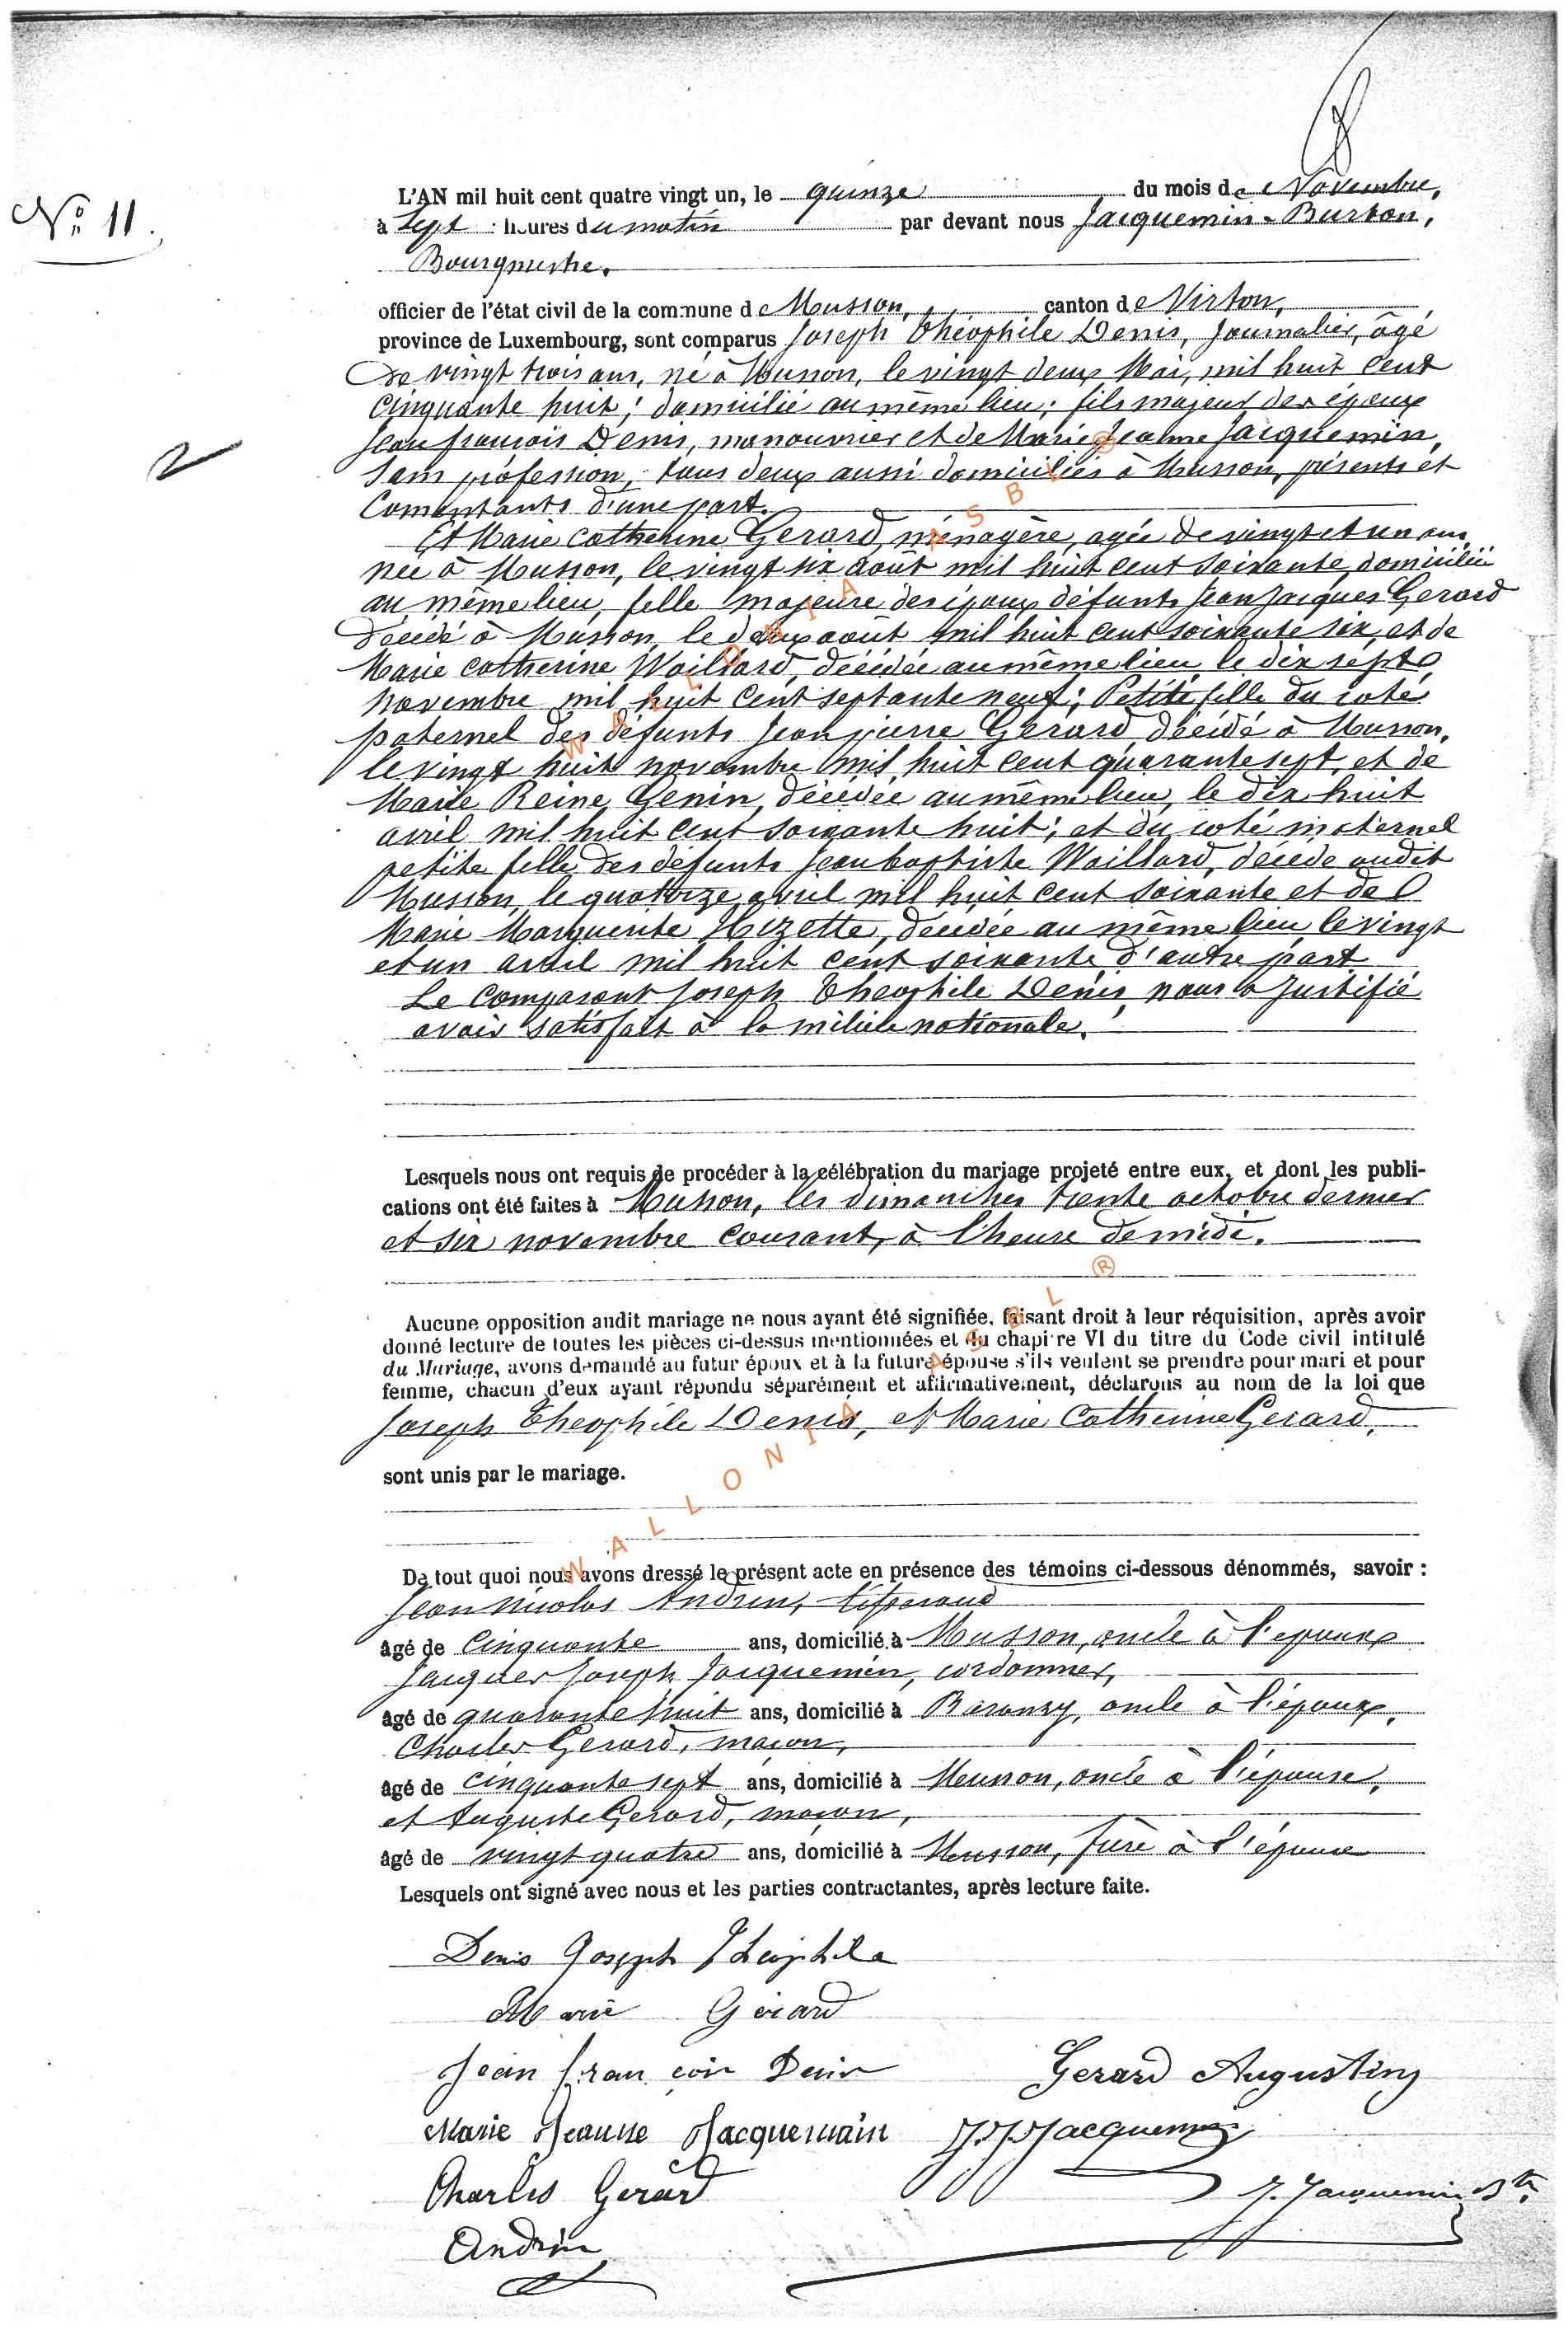 L'AN mil huit cent quatre vingt un, le quinze du mois de Novembre,
N° 11.
à Sept heures du matin par devant nous Jacquemin-Burton,
Bourgmestre.
officier de l'état civil de la commune de Musson, canton de Virton,
province de Luxembourg, sont comparus Joseph Théophile Denis, Journalier, âgé
de vingt trois ans, né à Musson, le vingt deux Mai, mil huit cent
cinquante huit; domicilié au même lieu; fils majeur des époux
Jean françois Denis, manouvrier et de Marie Jeanne Jacquemin,
sans profession, tous deux aussi domiciliés à Musson, présents et
Consentants d'une part.
Et Marie Catherine Gerard, ménagère, agée de vingt et un ans,
née à Musson, le vingt six août mil huit cent soixante, domiciliée
au même lieu, fille majeure des époux défunts Jean Jacques Gerard
décédé à Musson, le deux août mil huit cent soixante six, et de
Marie Catherine Waillard, décédée au même lieu, le dix sept
novembre mil huit cent septante neuf; Petite fille du coté
paternel des défunts Jean pierre Gerard décédé à Musson,
le vingt huit novembre mil huit cent quarante sept, et de
Marie Reine Genin, décédée au même lieu, le dix huit
avril mil huit cent soixante huit; et du coté maternel
petite fille des défunts Jean baptiste Waillard, décédé audit
Musson, le quatorze avril mil huit cent soixante et de
Marie Marguerite Hizette, décédée au même lieu le vingt
et un avril mil huit cent soixante, d'autre part
Le Comparant Joseph Théophile Denis, nous a justifié
avoir satisfait à la milice nationale.
2
Lesquels nous ont requis de procéder à la célébration du mariage projeté entre eux, et dont les publi-
cations ont été faites à Musson, les dimanches trente octobre dernier
et six novembre courant, à l'heure de midi.
Aucune opposition audit mariage ne nous ayant été signifiée, faisant droit à leur réquisition, après avoir
donné lecture de toutes les pièces ci-dessus mentionnées et du chapitre VI du titre du Code civil intitulé
du Mariage, avons demandé au futur époux et à la future épouse s'ils veulent se prendre pour mari et pour
femme, chacun d'eux ayant répondu séparément et affirmativement, déclarons au nom de la loi que
Joseph Théophile Denis, et Marie Catherine Gerard,
sont unis par le mariage.
De tout quoi nous avons dressé le présent acte en présence des témoins ci-dessous dénommés, savoir :
Jean Nicolas Andrin,
âgé de Cinquante ans, domicilié à Musson, oncle à l'epoux
Jacques Joseph Jacquemin, cordonnier,
âgé de quarante huit ans, domicilié à Baranzy, oncle à l'époux,
Charles Gerard, maçon,
âgé de cinquante sept ans, domicilié à Musson, oncle à l'épouse,
et Auguste Gerard, maçon,
âgé de vingt quatre ans, domicilié à Musson, frère à l'épouse
Lesquels ont signé avec nous et les parties contractantes, après lecture faite.
Denis Joseph Théophile
Marie Gérard
Jean françois Denis Gerard Augustin
Marie Jeanne Jacquemain J.J. Jacquemin
Charles Gerard J. Jacquemin Btn
Andrin
WALLONIA ASBL ®
WALLONIA ASBL ®